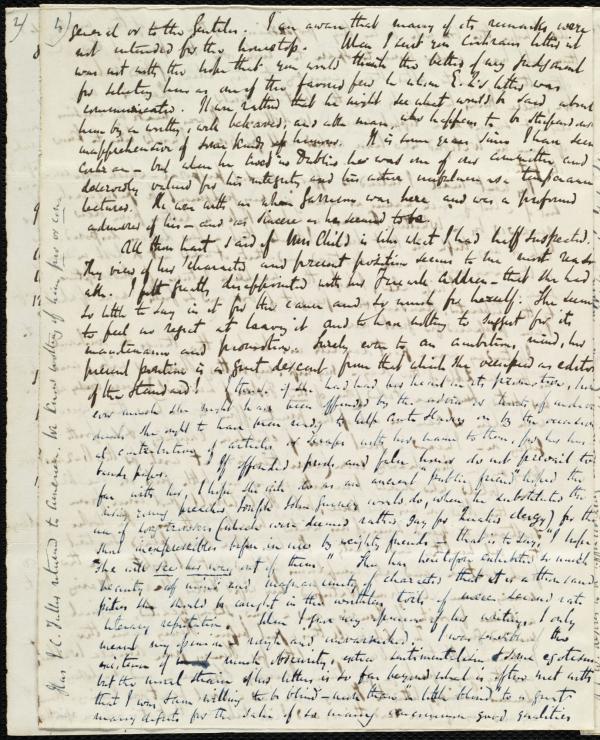 4)
general or to the Gentiles. I am aware that many of its remarks were
not intended for the housetop. When I sent you Cochrans letter it
was not with the hope that you would think the better of my judgment
for selecting him as one of the favored few to whom E. 's letter was
communicated. It was rather that he might see what would be said about
him by a worthy, well behaved, man, who happens to be
inapprehensive of some kinds of humour. It is some years since I have seen
but when he lived in Dublin he was one of our committee and
deservedly valued for his integrity and his active usefulness as a temperance
lecturer. He was with us when Garrison was here and was a profound
admirer of his - and as sincere as he seemed to be.
All thou hast said of Mrs Child is like what I had half suspected.
Thy view of her character and present position seems to me most reason-
able. I felt greatly disappointed with her Farewell Address - that she had
so little to say in it for the cause and so much for herself. She seems
to feel no regret at leaving it and to have nothing to suggest for its
maintenance and promotion. Surely even to an ambitious mind, her
present position is a great descent from that which she occupied as editor
of the Standard! if she had had her heart in its promotion, how
ever much she might have been offended by the advice or
she ought to have been ready to help Anti Slavery on by the occasional
contribution of articles or scraps with her name to them, for her
If offended pride and false honor do not prevail too
far with her, I hope she will do as an ancient "public friend" hoped the
young preacher Joseph John Gurney would do, when he substituted the
use of trousers (which were deemed rather gay for Quaker clergy) for the
inexpressibles before in use by weighty friends - that is to say, "I hope
she will see her way out of them." She has heretofore exhibited so much
beauty of mind and magnanimity of character that it is a thousand
pities she should be caught in the worthless toils of mere second rate
literary reputation. When I gave my opinion of her writings I only
meant my opinion rough and unvarnished. I was sensible of the
existence of much obscurity, extra sentimentalism & some egotism
but the moral strain of her letters is so far beyond what is often met with
that I was willing to be blind - more than "a little blind" to a great
many defects for the sake of so many uncommon good qualities
Has J. C. Fuller returned to America. We know nothing of him pro or con.